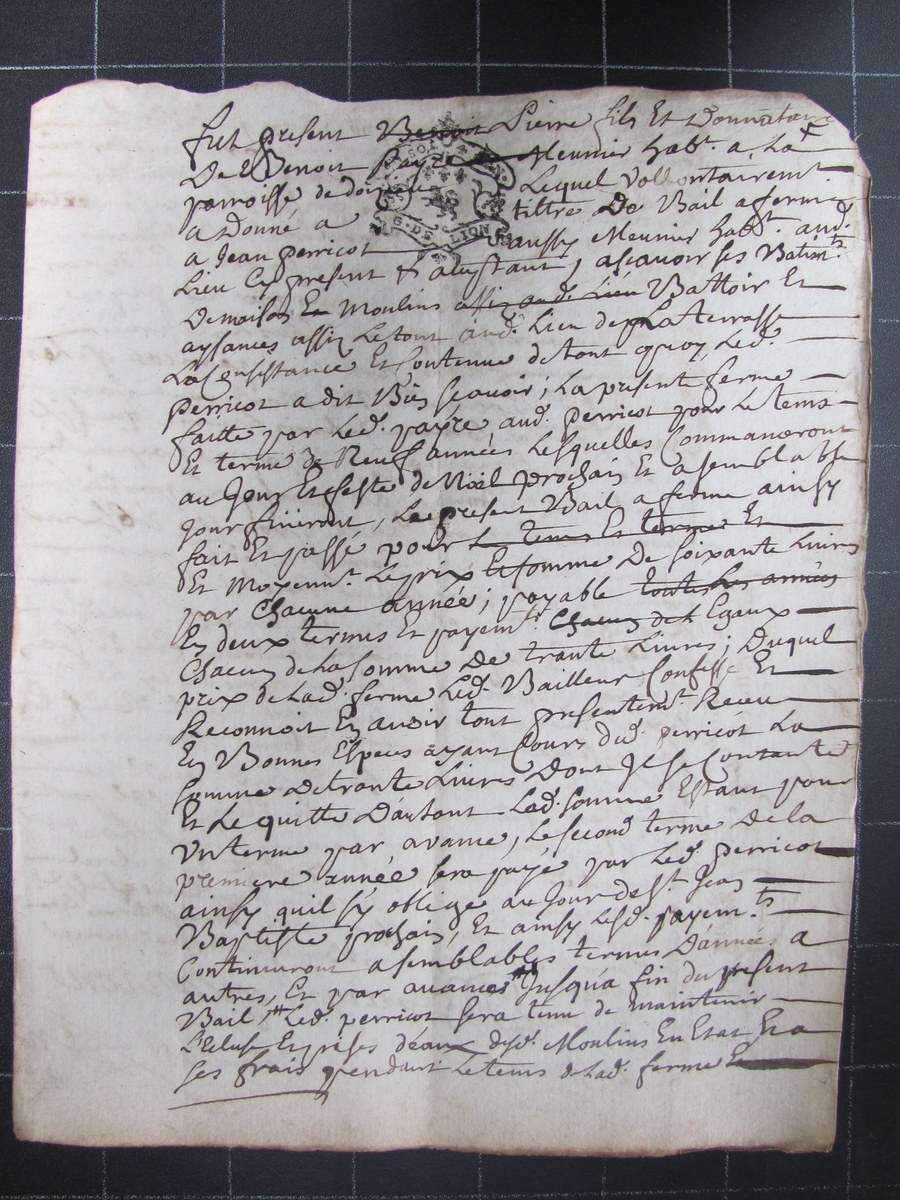 fut present Benoit Pierre fils Et Donnataire
De E Benoit Payre Meunier habt. a La
parroisse de Lequel Vollontairemt.
a Donné a tiltre De Bail a ferme
a Jean perricot aussy Meunier habt. aud.
Lieu Cy present & aceptant, ascavoir ses Batimts.
De maison En Moulins assis aud. Lieu Battoir Et
aysances assis Le tout aud. Lieu de La terrasse
La Consistance Et Contenue de tout quoy Led.
perricot a dit Bien scavoir; La presente ferme
faitte par Led. payre aud. perricot pour Le tems
Et terme de Neuf années Lesquelles Commanceront
au Jour Et feste de Noël prochain Et a semblable
Jour finiront, Le present Bail a ferme ainsy
fait Et passé pour Le tems Et terme Et
Et Moyennt. Le prix Et somme De soixante Livres
par Chacune année; payable toutes Les années
En deux termes Et payemts. Chacun de Egaux
Chacun de La somme De trante Livres; Duquel
prix de Lad. ferme Led. Bailleur Confesse Et
Reconnoit En avoir tout presentemt. Receu
En Bonnes Especes ayant Cours dud. perricot La
somme De trante Livres Dont Il se Contante
Et Le quitte D'autant Lad. somme Estant pour
Un terme par avance, Le second terme De la
premiere année sera payé par Led. perricot
ainsy quil s'y oblige au Jour de St. Jean
Baptiste prochain, Et ainsy Lesd. payemts.
Continuront a semblables termes D'année a
autres, Et par avances Jusqu'a fin du present
Bail, Led. perricot sera tenu de maintenir
L'Ecluse Et prises d'eaux desd. Moulins En Etat Et a
ses frais pendant Le tems de Lad. ferme Et